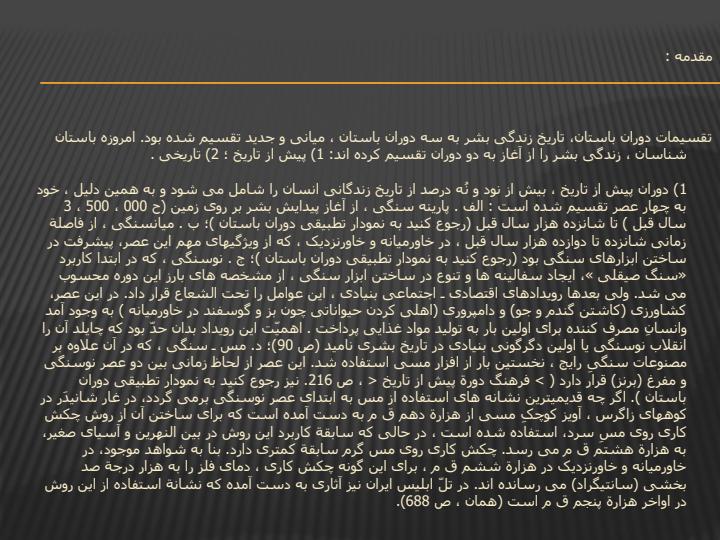 مقدمه :
تقسیمات دوران باستان، تاریخ زندگی بشر به سه دوران باستان ، میانی و جدید تقسیم شده بود. امروزه باستان
شناسان ، زندگی بشر را از آغاز به دو دوران تقسیم کرده اند: 1) پیش از تاریخ ؛ 2) تاریخی .
1) دوران پیش از تاریخ ، بیش از نود و نُه درصد از تاریخ زندگانی انسان را شامل می شود و به همین دلیل ، خود
به چهار عصر تقسیم شده است : الف . پارینه سنگی ، از آغاز پیدایش بشر بر روی زمین (ح 000 ، 500 ، 3
سال قبل ) تا شانزده هزار سال قبل (رجوع کنید به نمودار تطبیقی دوران باستان )؛ ب . میانسنگی ، از فاصلة
زمانی شانزده تا دوازده هزار سال قبل ، در خاورمیانه و خاورنزدیک ، که از ویژگیهای مهم این عصر، پیشرفت در
ساختن ابزارهای سنگی بود (رجوع کنید به نمودار تطبیقی دوران باستان )؛ ج . نوسنگی ، که در ابتدا کاربرد
«سنگ صیقلی »، ایجاد سفالینه ها و تنوع در ساختن ابزار سنگی ، از مشخصه های بارز این دوره محسوب
می شد. ولی بعدها رویدادهای اقتصادی ـ اجتماعی بنیادی ، این عوامل را تحت الشعاع قرار داد. در این عصر،
کشاورزی (کاشتن گندم و جو) و دامپروری (اهلی کردن حیواناتی چون بز و گوسفند در خاورمیانه ) به وجود آمد
وانسانِ مصرف کننده برای اولین بار به تولید مواد غذایی پرداخت . اهمیّت این رویداد بدان حدّ بود که چایلد آن را
انقلاب نوسنگی یا اولین دگرگونی بنیادی در تاریخ بشری نامید (ص 90)؛ د. مس ـ سنگی ، که در آن علاوه بر
مصنوعات سنگی رایج ، نخستین بار از افزار مسی استفاده شد. این عصر از لحاظ زمانی بین دو عصر نوسنگی
و مفرغ (برنز) قرار دارد ( > فرهنگ دورة پیش از تاریخ < ، ص 216. نیز رجوع کنید به نمودار تطبیقی دوران
باستان ). اگر چه قدیمیترین نشانه های استفاده از مس به ابتدای عصر نوسنگی برمی گردد، در غار شانیدَر در
کوههای زاگرس ، آویز کوچکِ مسی از هزارة دهم ق م به دست آمده است که برای ساختن آن از روش چکش
کاری روی مسِ سرد، استفاده شده است ، در حالی که سابقة کاربرد این روش در بین النهرین و آسیای صغیر،
به هزارة هشتم ق م می رسد. چکش کاری روی مس گرم سابقة کمتری دارد. بنا به شواهد موجود، در
خاورمیانه و خاورنزدیک در هزارة ششم ق م ، برای این گونه چکش کاری ، دمای فلز را به هزار درجة صد
بخشی (سانتیگراد) می رسانده اند. در تلّ ابلیس ایران نیز آثاری به دست آمده که نشانة استفاده از این روش
در اواخر هزارة پنجم ق م است (همان ، ص 688).